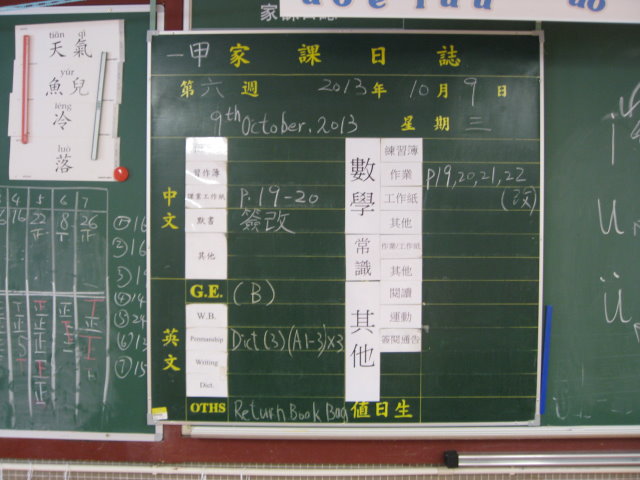 tiān qì
天氣
yúr
魚兒
lěng
冷
luò
落
家課日誌
一甲家課日誌
第六週 2013年10月9日
9th October, 2013 星期三
中文
習作簿
課業工作紙 p.19-20
默書 簽改
其他
英文
G.E. (B)
W.B.
Penmanship Dict(3)(A1-3)x3
Writing
Dict.
OTHS Return Book Bag
數學
練習簿
作業 p19,20,21,22
工作紙 (改)
其他
常識
作業/工作紙
其他
其他
閱讀
運動
簽閱通告
值日生
4 5 6 7
16 22 8 26